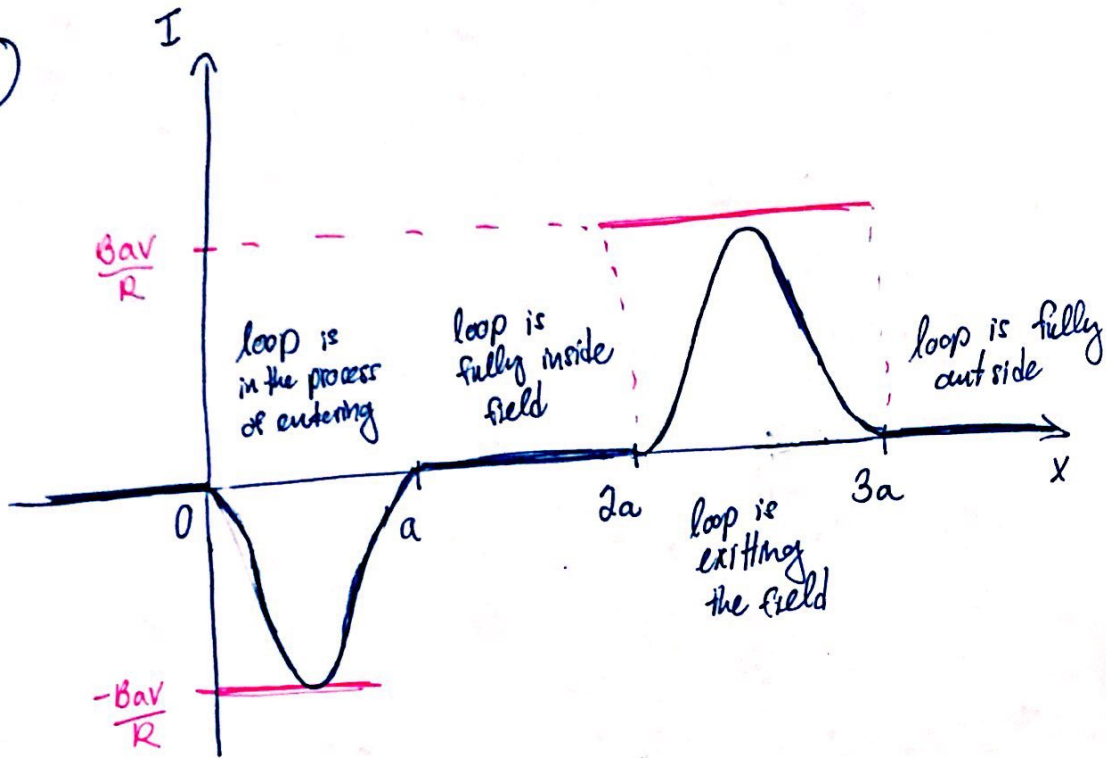 )
I
Bav
R
loop is
in the process
of entering
loop is
fully inside
field
loop is fully
outside
0
a
2a
3a
X
loop is
exitting
the field
-Bav
R